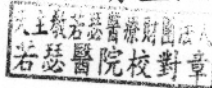 天主教若瑟醫療財團法人
若瑟醫院校對章